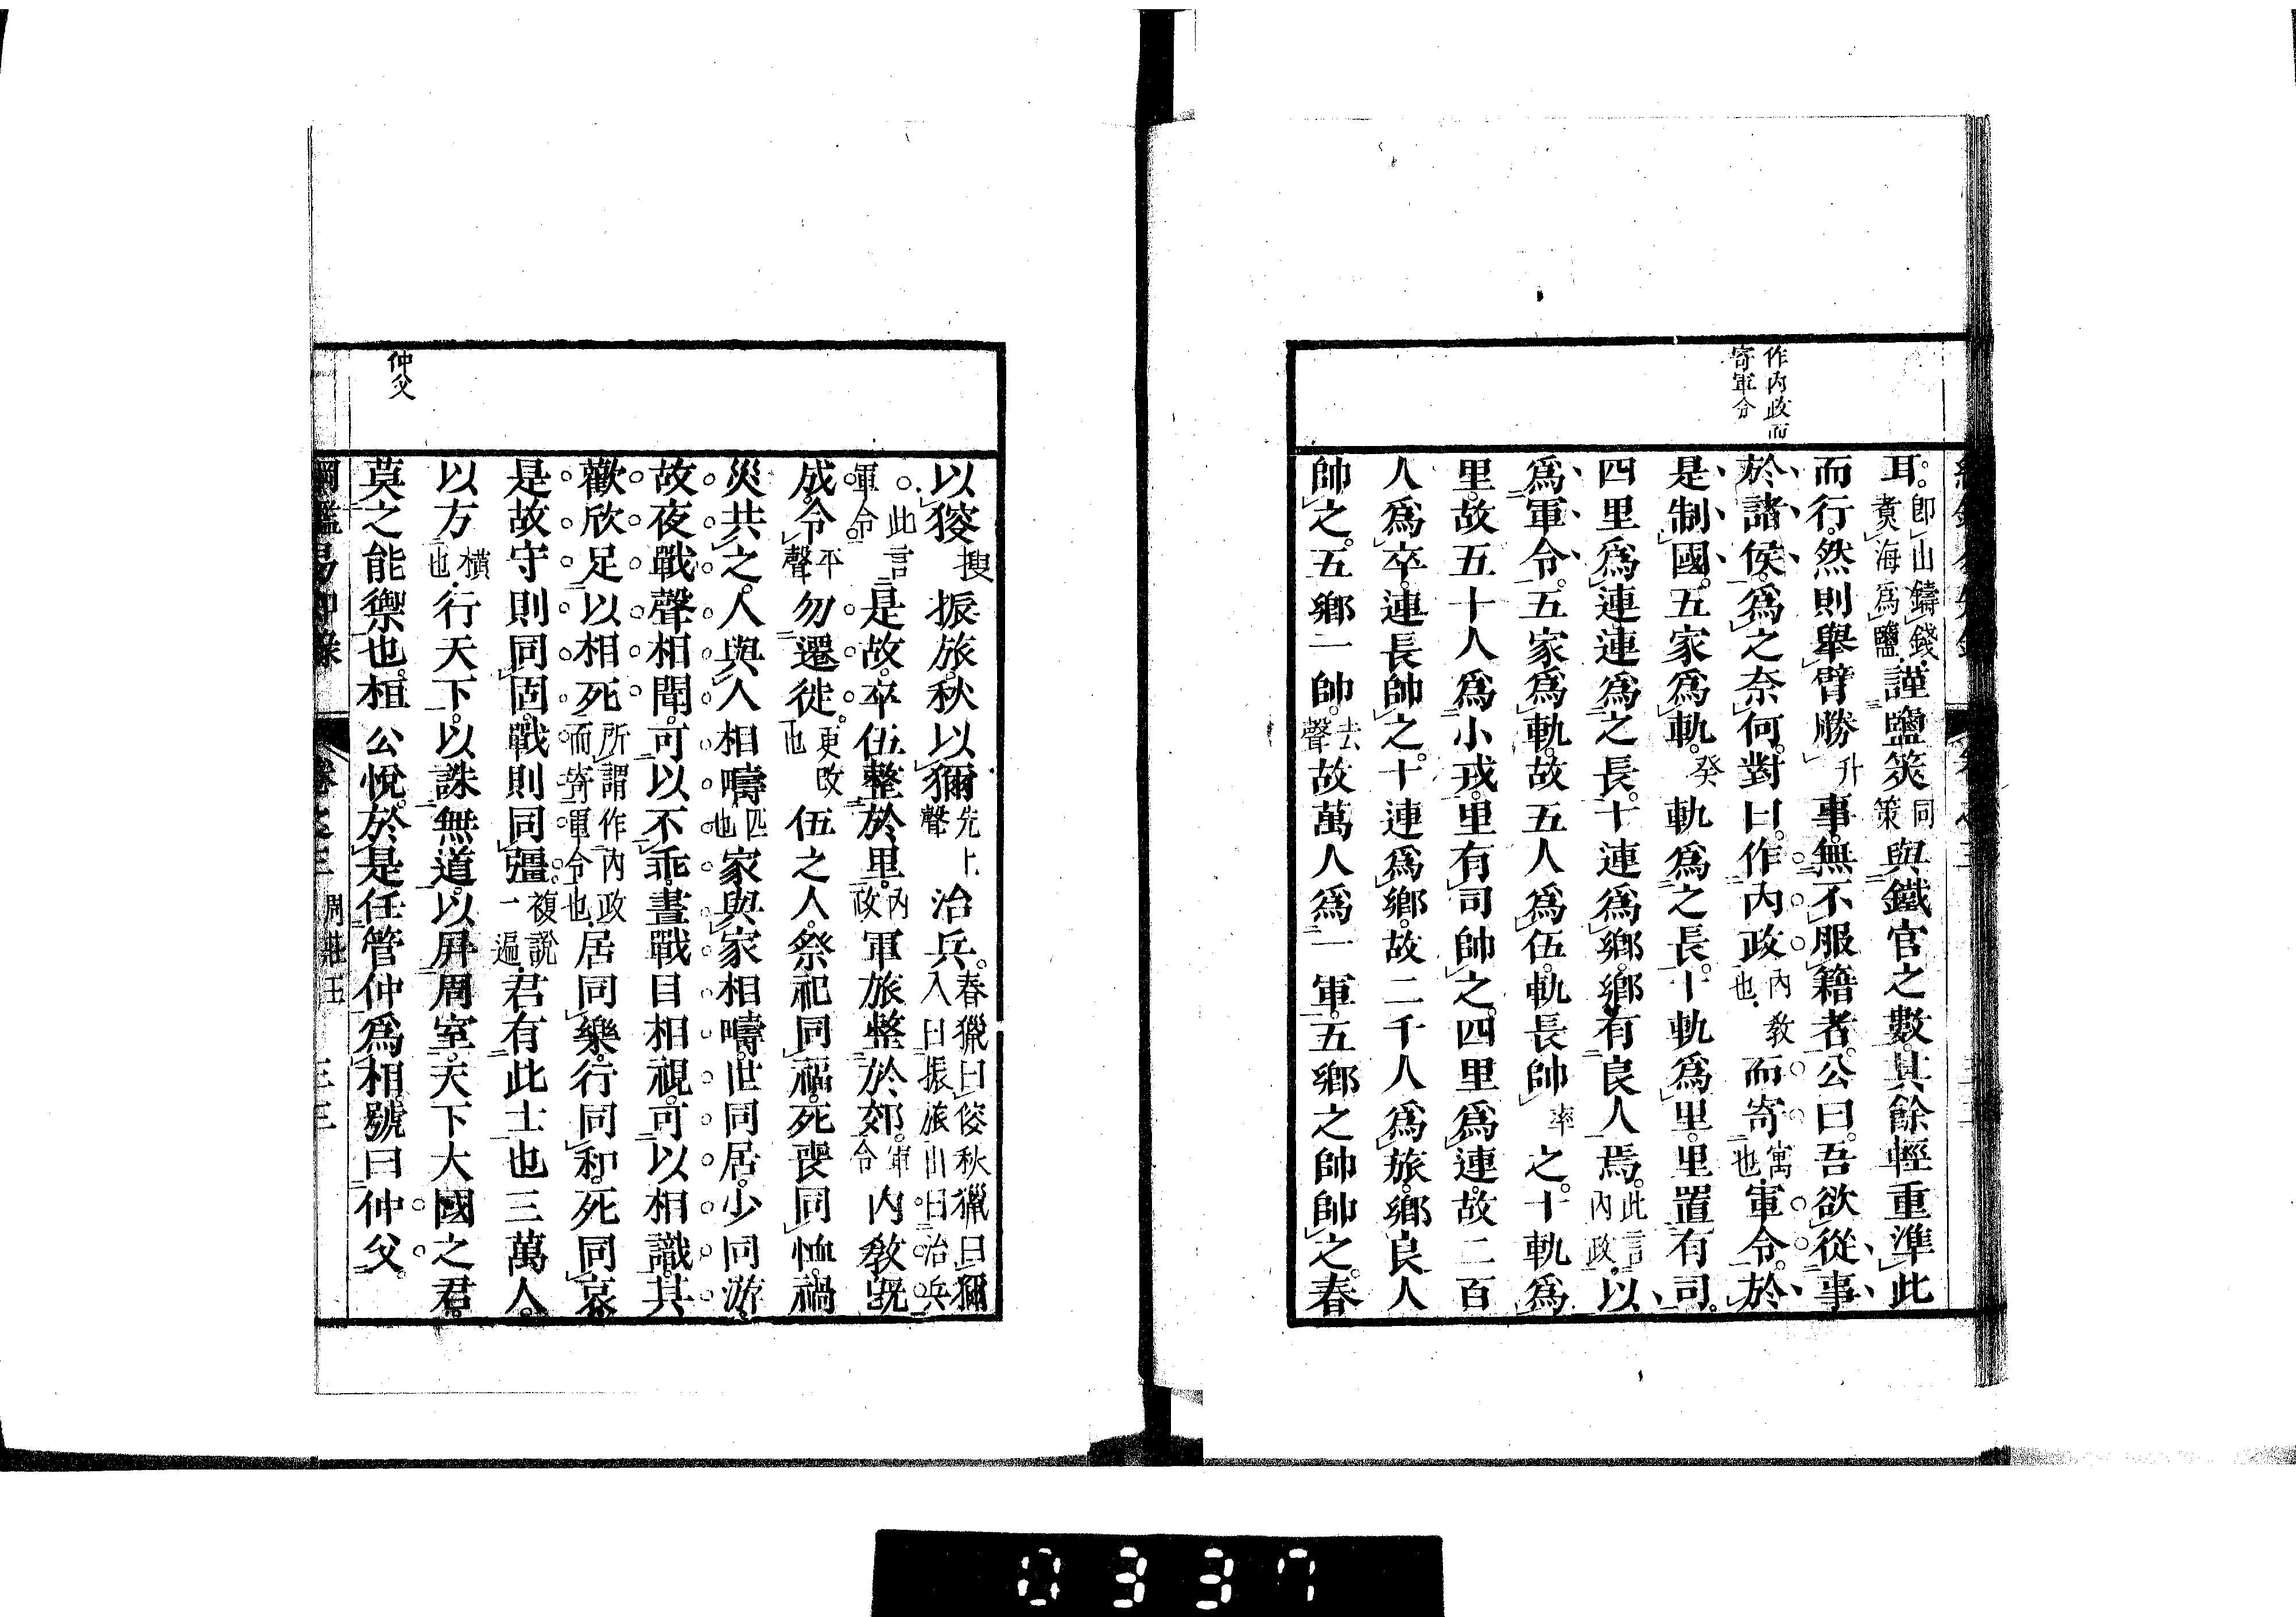 作內政而
寄軍令
耳。即山鑄錢。煑海為鹽。謹鹽筴同策與鐵官之數。其餘輕重準此
而行。然則舉臂勝升事。無不服籍者。公曰。吾欲從事
於諸侯。爲之奈何。對曰。作內政內教也。而寄寓也。軍令。於
是制國。五家爲軌。癸軌爲之長。十軌爲里。里置有司。
四里爲連。連爲之長。十連爲鄉。鄉有良人焉。此言內政。以
爲軍令。五家爲軌。故五人爲伍。軌長帥率之。十軌爲
里。故五十人爲小戎。里有司帥之。四里爲連。故二百
人爲卒。連長帥之。十連爲鄉。故二千人爲旅。鄉良人
帥之。五鄉一帥。去聲故萬人爲一軍。五鄉之帥帥之。春
以獀搜振旅。秋以獮先上聲治兵。春獵曰獀秋獵曰獮入曰振旅出曰治兵
此言軍令。是故。卒伍整於里。內政軍旅整於郊。軍令內教既
成。令平聲勿遷徙。更改也伍之人。祭祀同福。死喪同恤。禍
災共之。人與人相疇匹也家與家相疇。世同居。少同游。
故夜戰聲相聞。可以不乖。晝戰目相視。可以相識。其
歡欣足以相死所謂作內政而寄軍令也。居同樂。行同和。死同哀。
是故守則同固。戰則同彊。複說一遍。君有此士也三萬人。
以方橫也。行天下。以誅無道。以屏周室。天下大國之君。
莫之能禦也。桓公悅。於是任管仲爲相。號曰仲父。
仲父
綱鑑易知錄 卷之三 周莊王 三三
0337